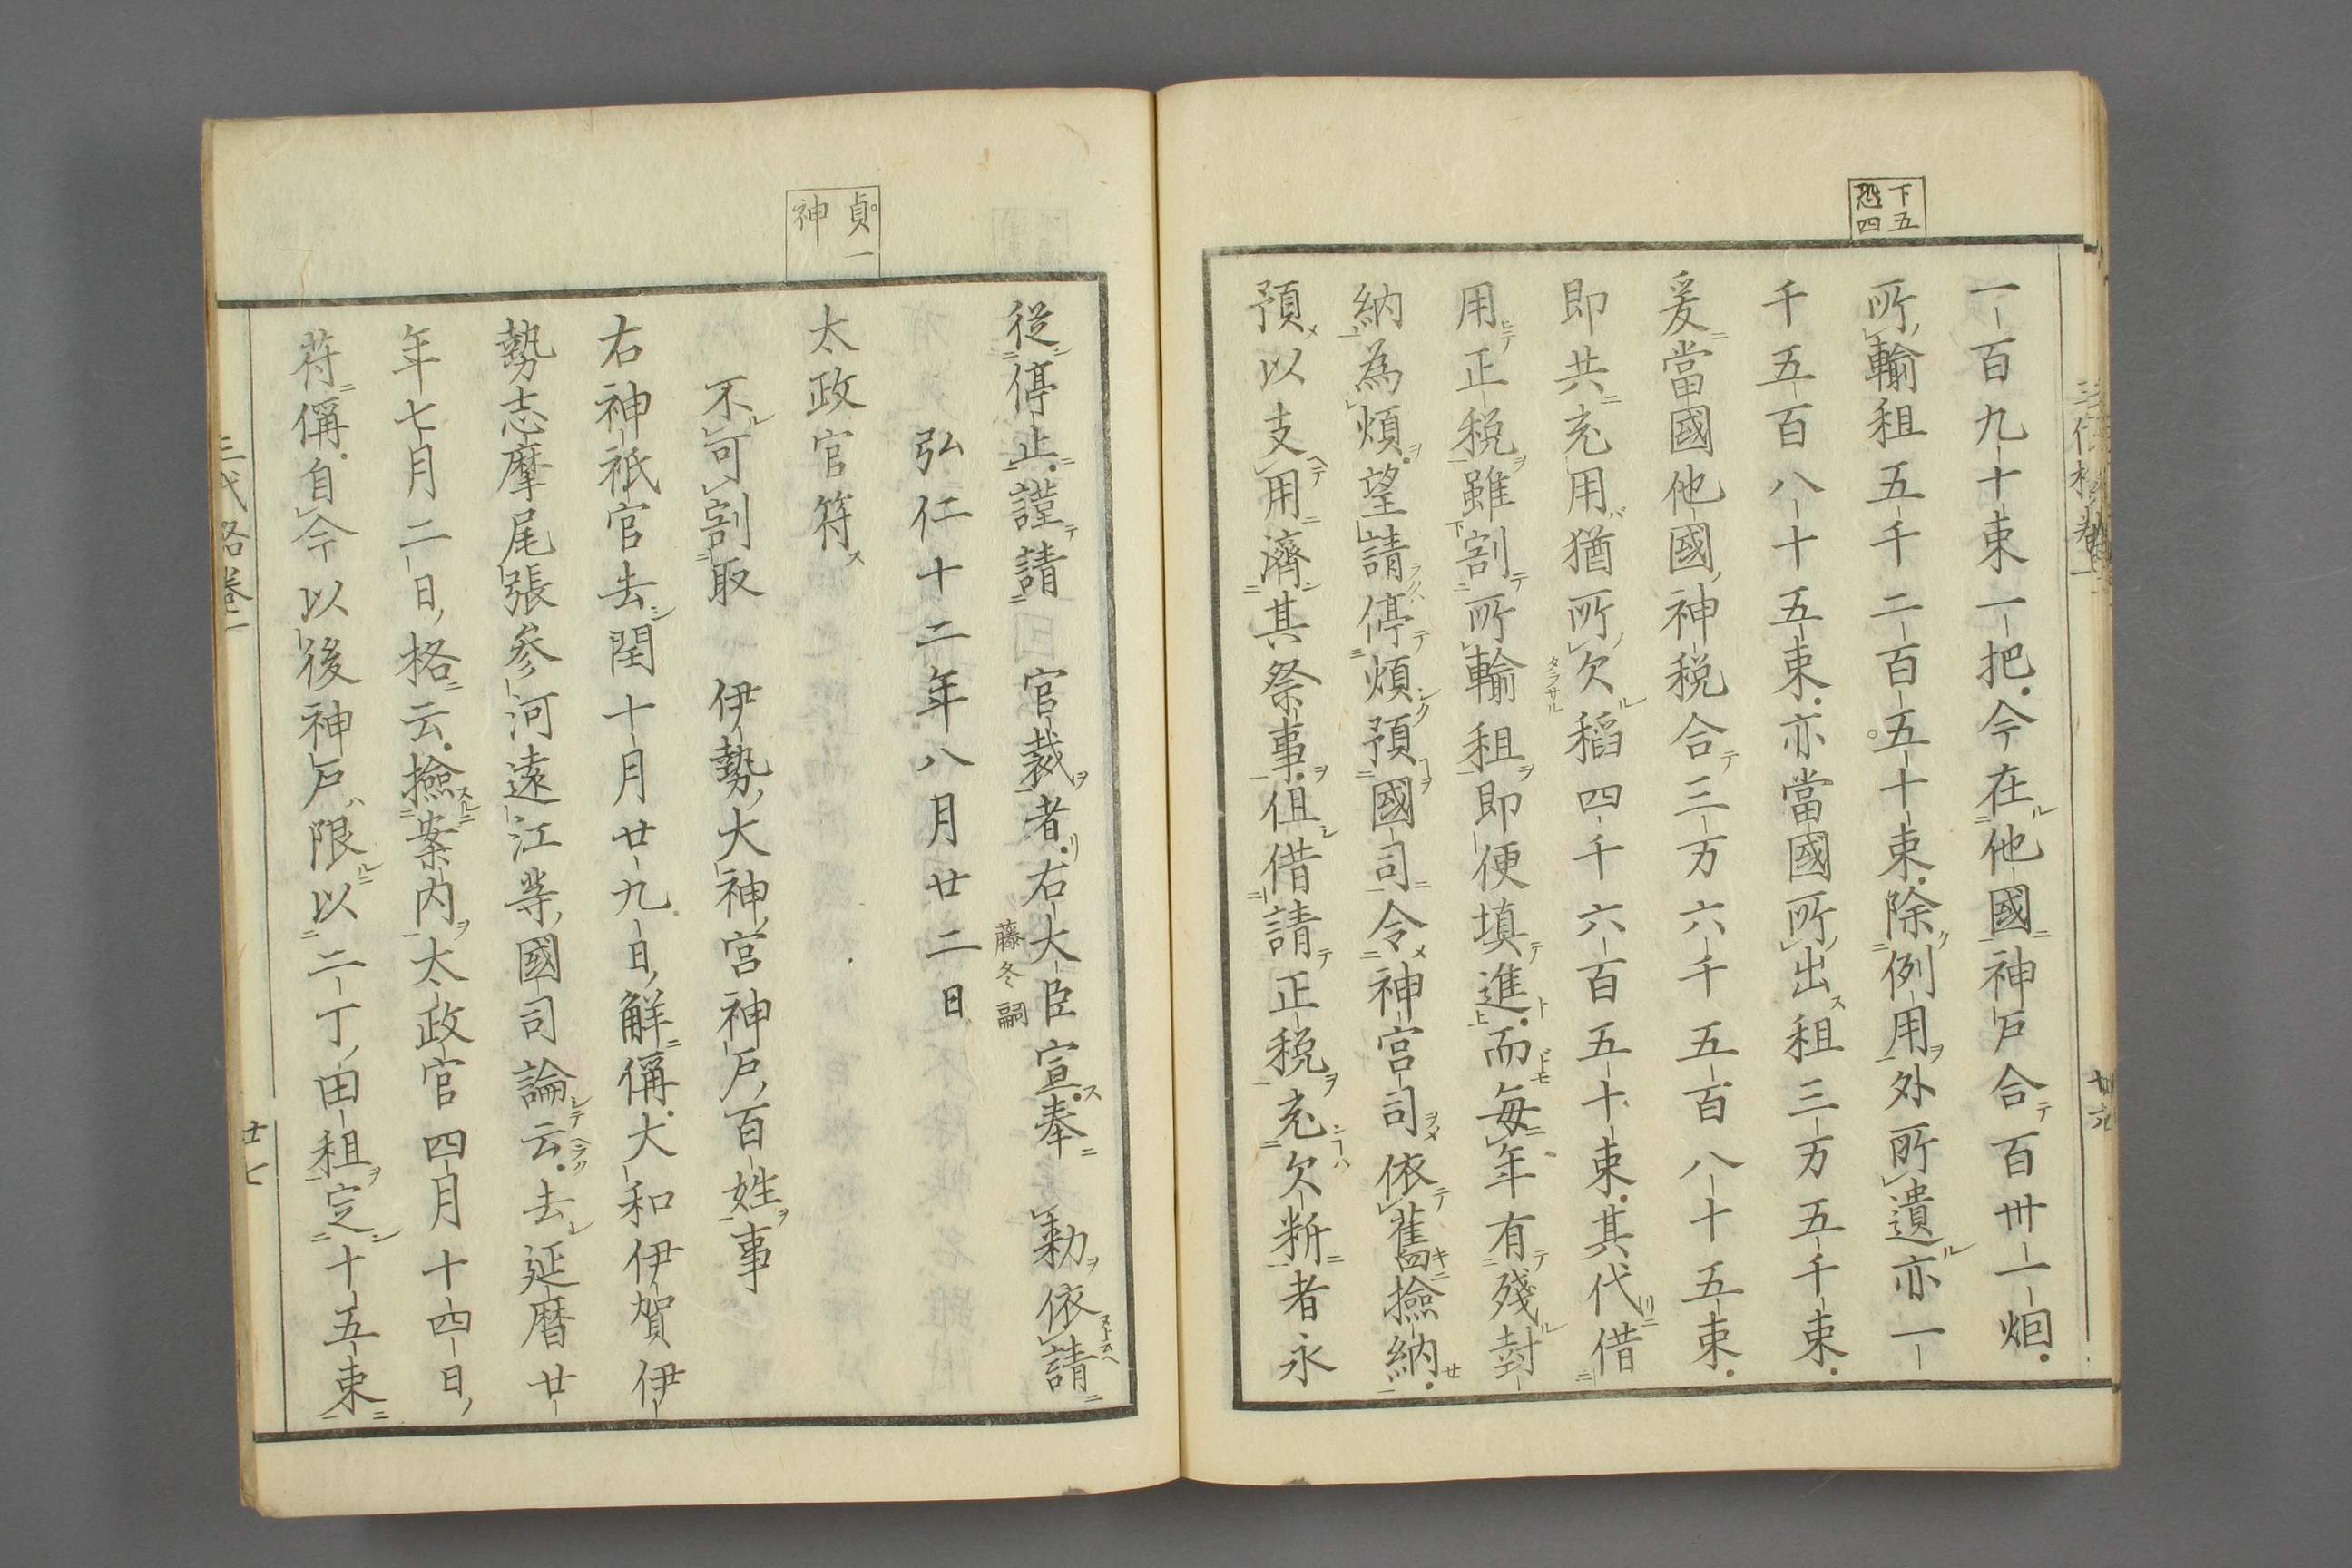 下五
恐四
一百九十束一把今在他國神戸合百卅一烟
所輸租五千二百五十束除例用外所遺亦一
千五百八十五束亦當國所出租三万五千束
爰當國他國神税合三万六千五百八十五束
即共充用猶所欠稲四千六百五十束其代借
用正税雖割所輸租即便填進而毎年有殘封
納為煩望請停煩預國司令神宮司依舊撿納
預以支用濟其祭事但借請正税充欠断者永
貞一
神
従停止謹請官裁者右大臣宣奉勅依請
藤冬嗣
弘仁十二年八月廿二日
太政官符
不可割取伊勢大神宮神戸百姓事
右神祇官去閏十月廿九日解偁大和伊賀伊
勢志摩尾張参河遠江等國司論云去延暦廿
年七月二日格云撿案内太政官四月十四日
符偁自今以後神戸限以二丁田租定十五束
三代格巻一
廿七